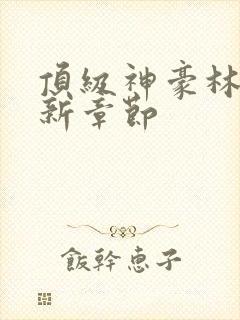 頂級神豪林
新章節
飯幹恵子